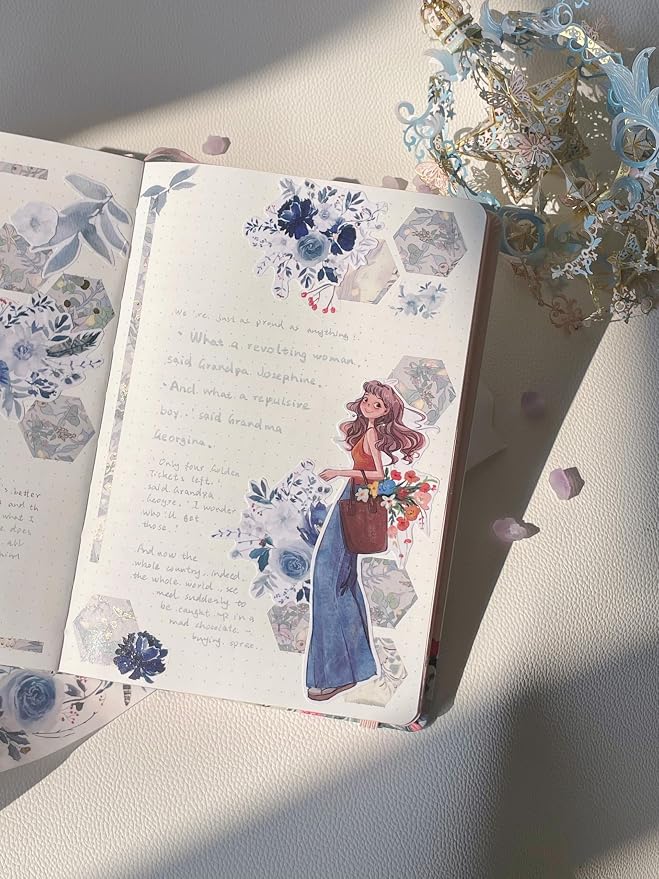 s better
and th
what I
e does
all
him!
We're just as proud as anything!
" What a revolting woman,
said Grandpa Josephine.
" And what a repulsive
boy..! said Grandma
Georgina.
Only four Golden
Tickets left.
said Grandpa
George. I wonder
who'll get
those.!
And now the
whole country, indeed,
the whole world, see
med suddenly to
be caught up in a
mad chocolate -
buying spree.